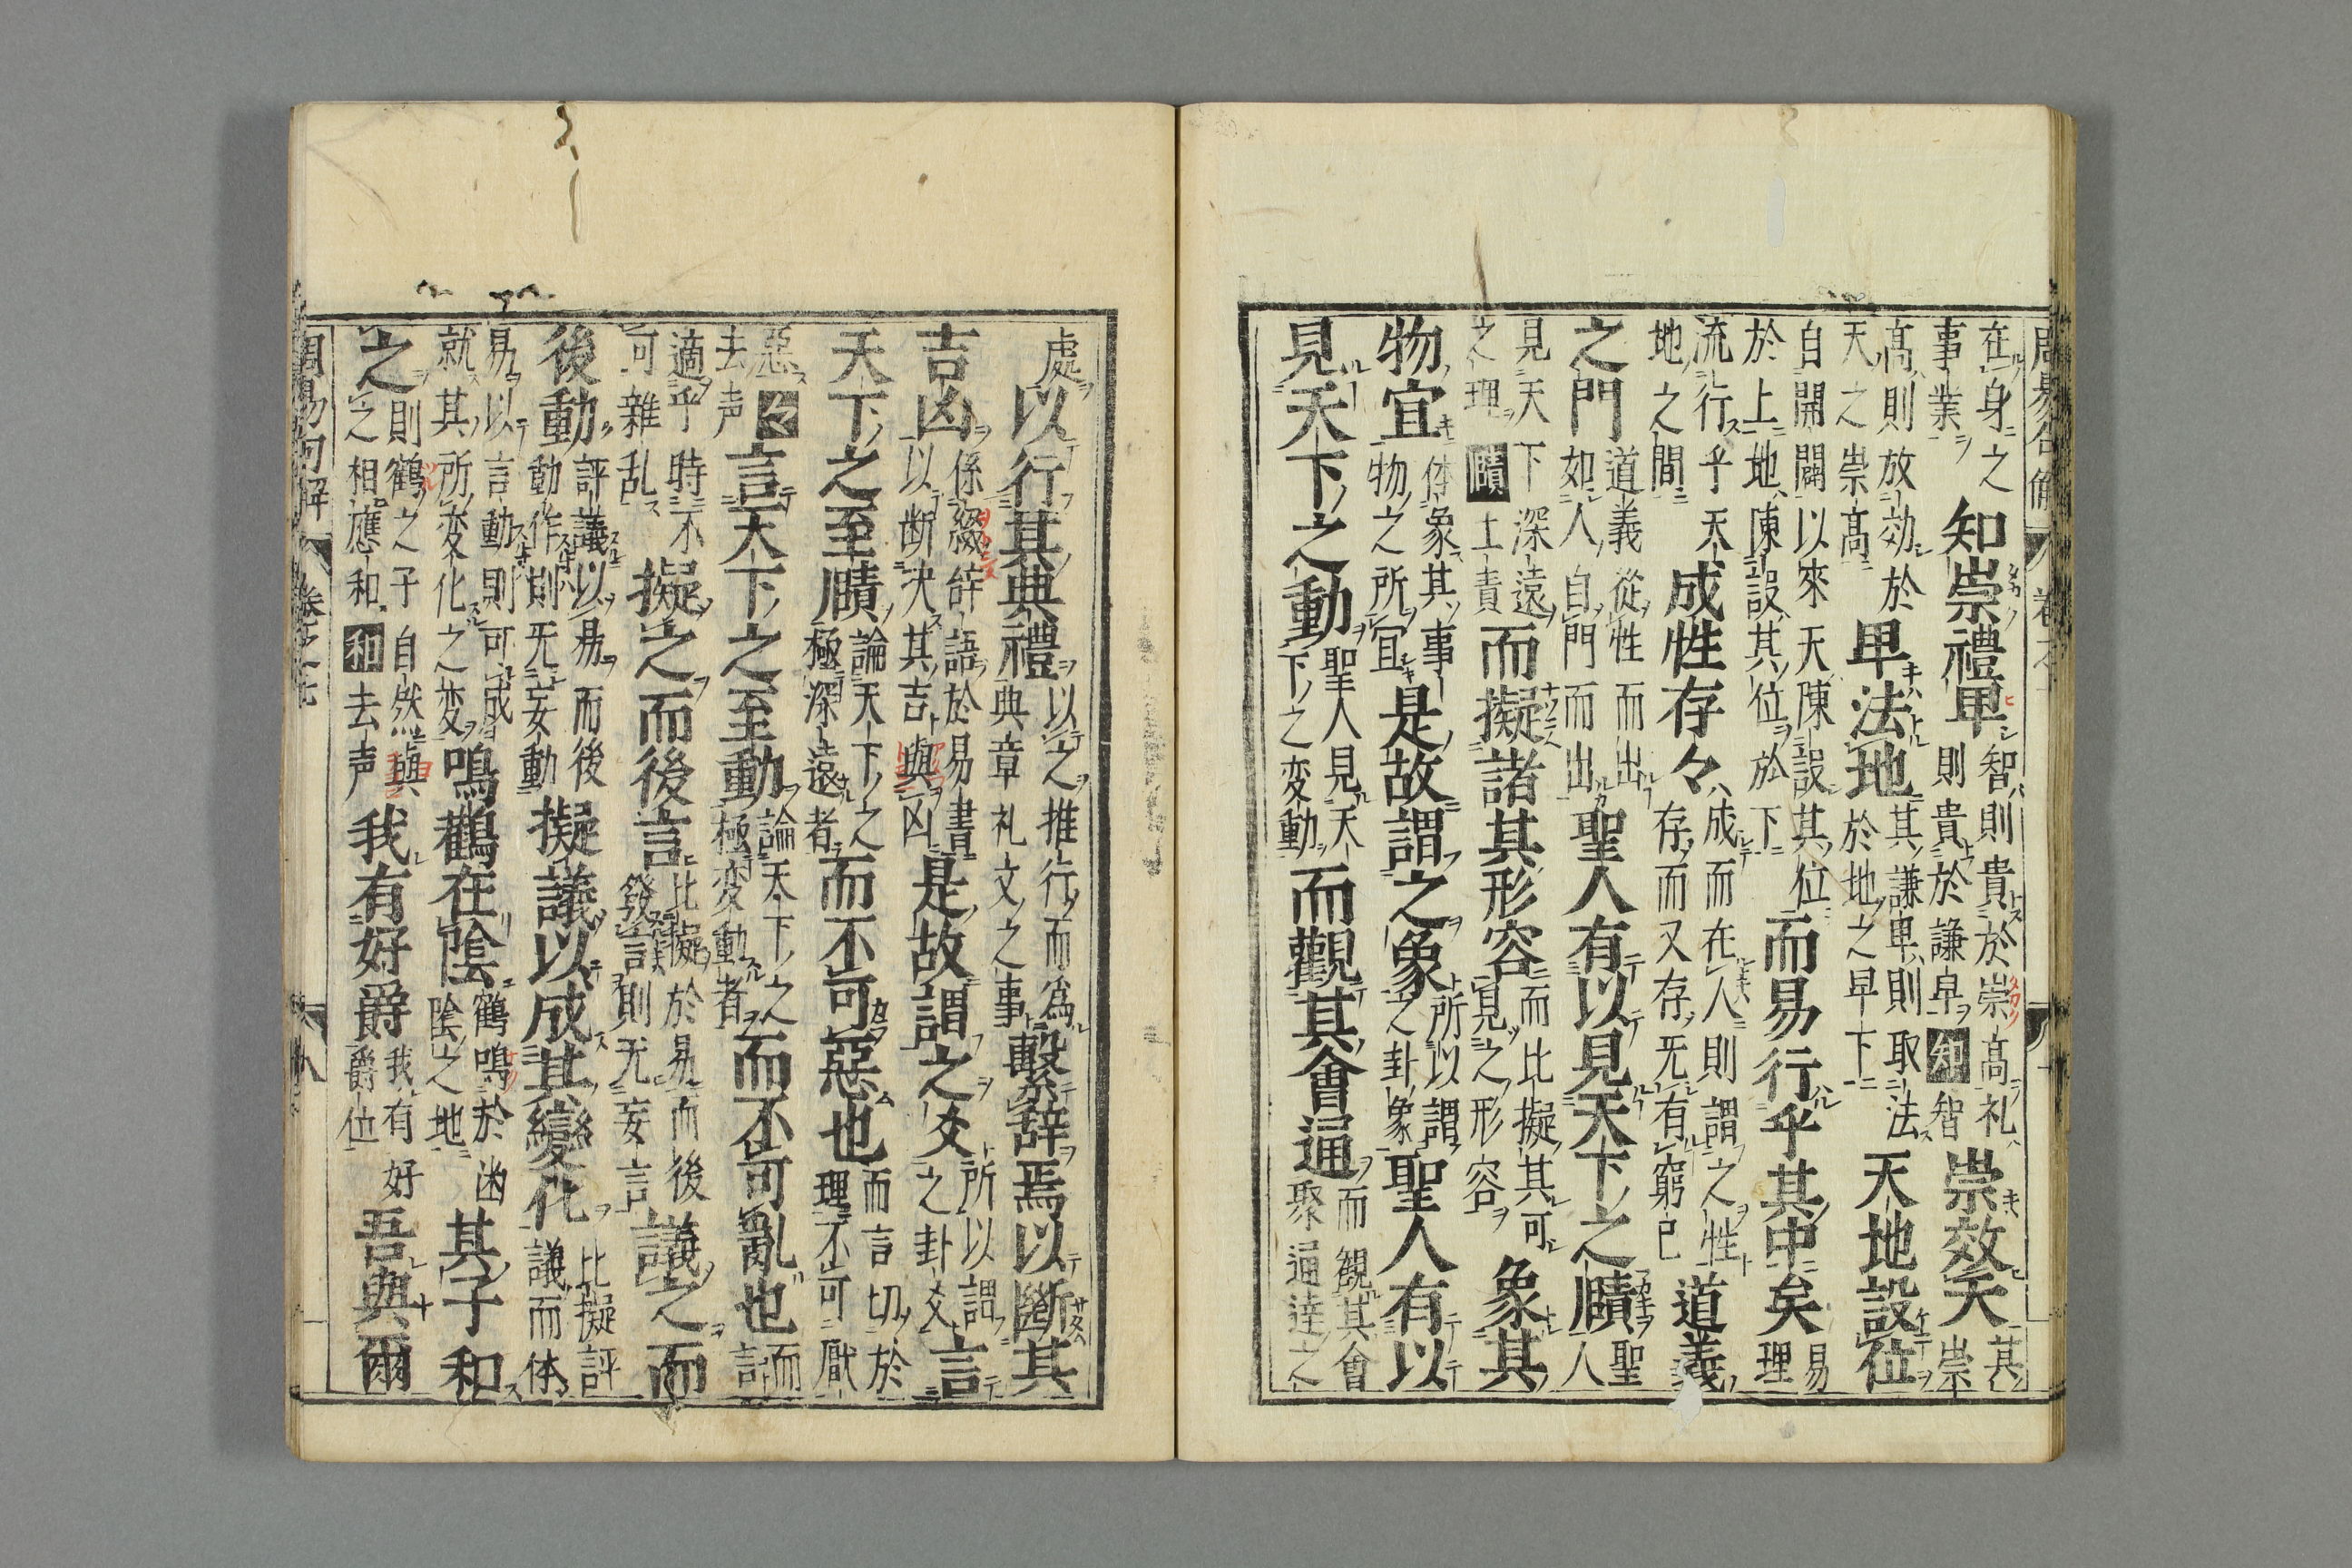 周易句解 卷之
在身之事業知崇禮卑智則貴於崇高礼則貴於謙卑知智崇效天其崇
高則放効於天之崇高卑法地其謙卑則取法於地之卑下天地設位
自開闢以來天陳設其位於上地陳設其位於下而易行乎其中矣易理
流行乎天地之間成性存々成而在人則謂之性存而又存无有窮已道義
之門道義從性而出如人自門而出聖人有以見天下之賾聖人
見天下深遠之理賾士責而擬諸其形容而比擬其可見之形容象其
物宜体象其事物之所宜是故謂之象所以謂之卦象聖人有以
見天下之動聖人見天下之変動而觀其會通而觀其會聚通達之
處以行其典禮以之推行而為典章礼文之事繫辭焉以斷其
吉凶係綴辞語於易書以断決其吉與凶是故謂之爻所以謂之卦爻言
天下之至賾論天下之極深遠者而不可惡也而言切於理不可厭
惡々去声言天下之至動論天下之極変動者而不可亂也而言
適乎時不可雜乱擬之而後言比擬於易而後發言則无妄言議之而
後動評議以易而後動作則无妄動擬議以成其變化比擬評議而体
易以言動則可成就其所変化之変鳴鶴在陰鶴鳴於幽陰之地其子和
之則鶴之子自然與之相應和和去声我有好爵我有好爵位吾與爾
周易句解 卷之七 八